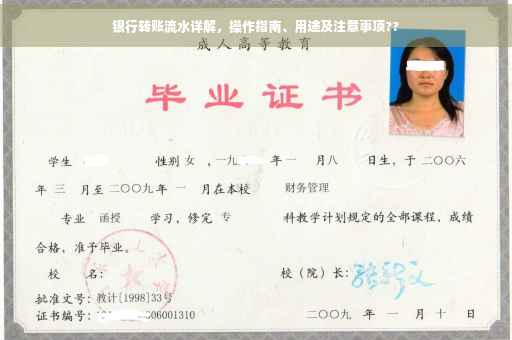 银行转账流水详解，操作指南、用途及注意事项??
成人高等教育
毕业证书
学生 性别 女 ，一九 年 一 月八 日生，于 二〇〇六
年 三 月至 二〇〇九 年 一 月在本校 财务管理
专业 函授 学习，修完 专 科教学计划规定的全部课程，成绩
合格，准予毕业。
校 名： 校（院）长：
批准文号：教计[1998]33号
证书编号： 06001310 二〇〇九 年 一 月 十 日